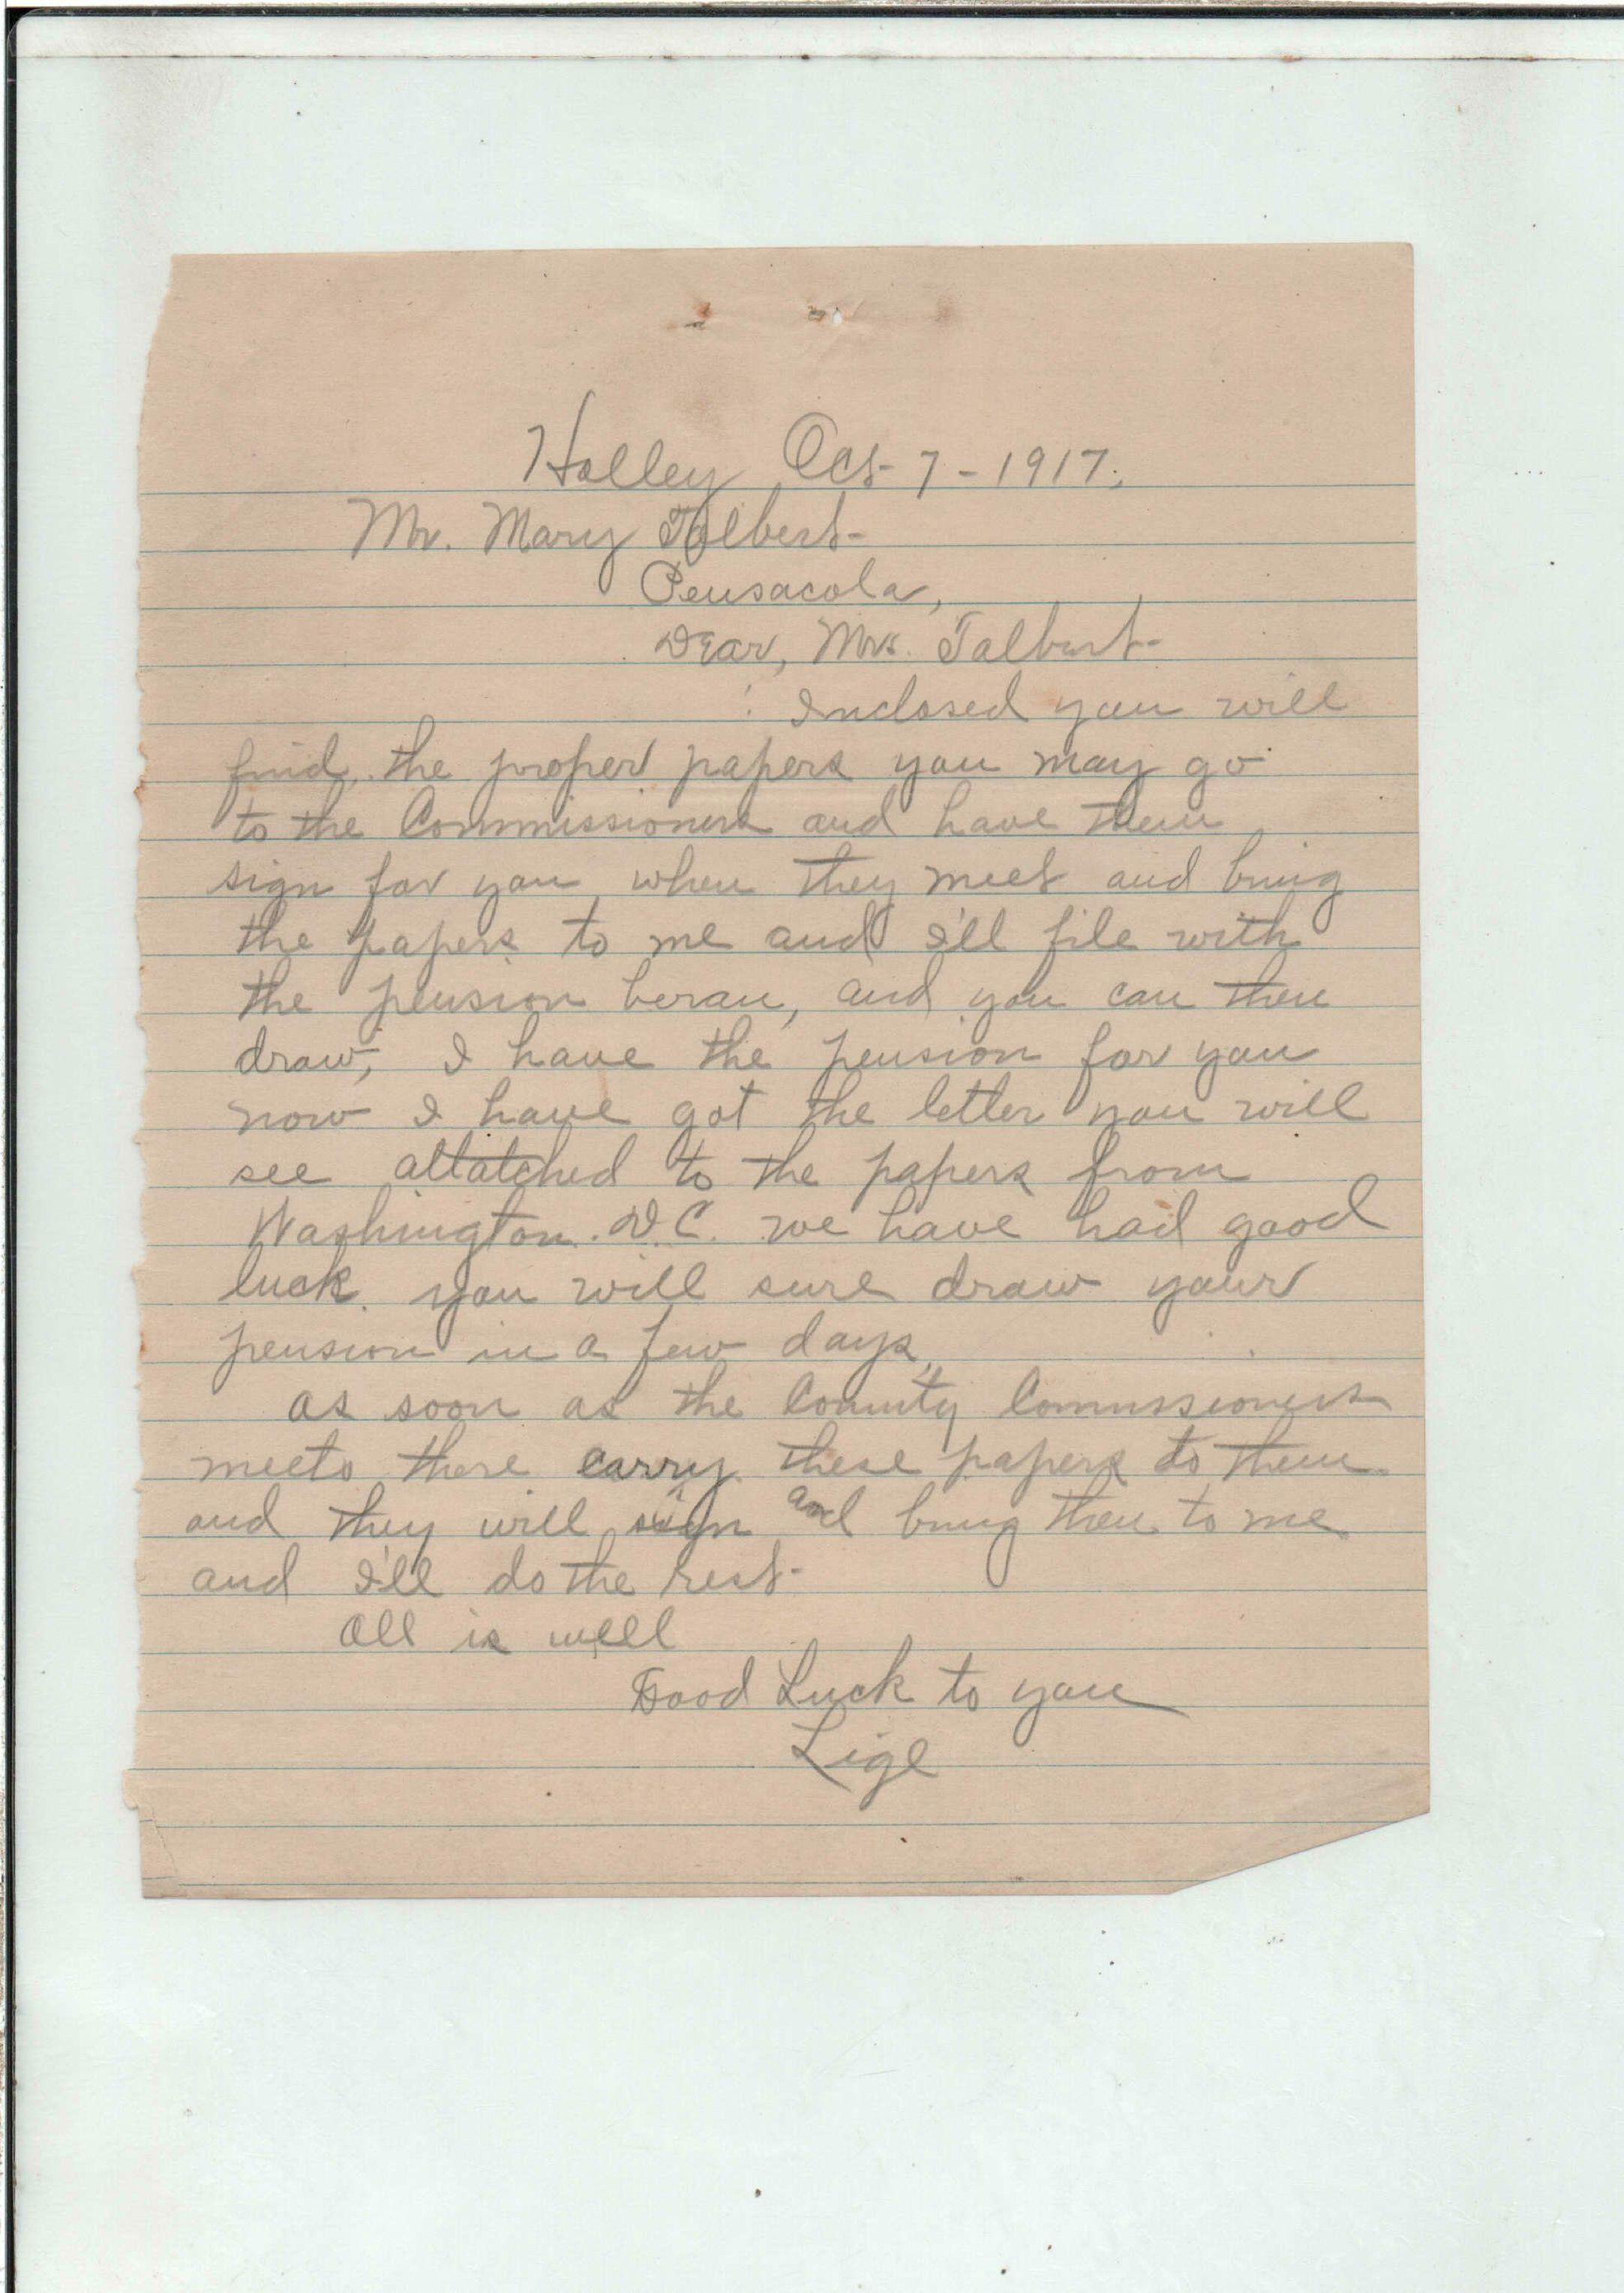 Holley Oct 7 - 1917.
Mr. Mary Talbert
Pensacola,
Dear, Mrs. Talburt
Inclosed you will
find, the proper papers you may go
to the Commissioners and have them
sign for you when they meet and bring
the papers to me and I'll file with
the pension berau, and you can then
draw, I have the pension for you
now I have got the letter you will
see attatched to the papers from
Washington. D.C. we have had good
luck. you will sure draw your
pension in a few days,
as soon as the County Commssioners
meets there carry these papers to them
and they will sign and bring them to me
and I'll do the rest-
All is well
Good Luck to you
Lige